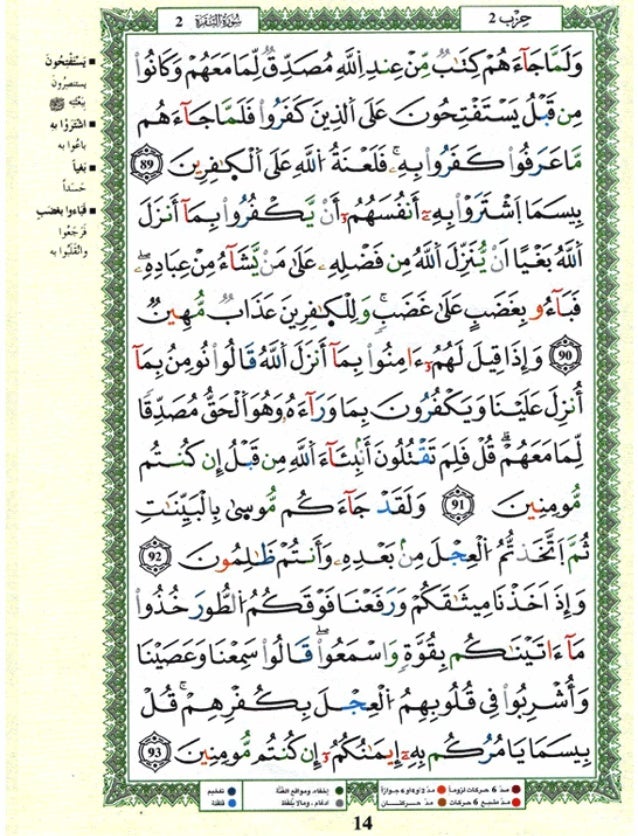 حِزْب 2
سُورَةُ البَقَرَة 2
وَلَمَّا جَآءَهُمْ كِتَٰبٌ مِّنْ عِندِ اِ۬للَّهِ مُصَدِّقٌ لِّمَا مَعَهُمْ وَكَانُواْ
مِن قَبْلُ يَسْتَفْتِحُونَ عَلَى اَ۬لذِينَ كَفَرُواْ فَلَمَّا جَآءَهُم
مَّا عَرَفُواْ كَفَرُواْ بِهِۦۚ فَلَعْنَةُ اُ۬للَّهِ عَلَى اَ۬لْكٰ۪فِرِينَ 89
بِيسَمَا اَ۪شْتَرَوْاْ بِهِۦٓ أَنفُسَهُمُۥٓ أَنْ يَّكْفُرُواْ بِمَآ أَنزَلَ
اَ۬للَّهُ بَغْياً اَنْ يُّنَزِّلَ اَ۬للَّهُ مِن فَضْلِهِۦ عَلَىٰ مَنْ يَّشَآءُ مِنْ عِبَادِهِۦۖ
فَبَآءُو بِغَضَبٍ عَلَىٰ غَضَبٍۚ وَلِلْكٰ۪فِرِينَ عَذَابٌ مُّهِينٌ
90 وَإِذَا قِيلَ لَهُمُۥٓ ءَامِنُواْ بِمَآ أَنزَلَ اَ۬للَّهُ قَالُواْ نُومِنُ بِمَآ
أُنزِلَ عَلَيْنَا وَيَكْفُرُونَ بِمَا وَرَآءَهُۥ وَهُوَ اَ۬لْحَقُّ مُصَدِّقاً
لِّمَا مَعَهُمْۖ قُلْ فَلِمَ تَقْتُلُونَ أَنۢبِئَآءَ اَ۬للَّهِ مِن قَبْلُ إِن كُنتُم
مُّومِنِينَ 91 وَلَقَدْ جَآءَكُم مُّوسىٰ بِالْبَيِّنَٰتِ
ثُمَّ اَ۪تَّخَذتُّمُ اُ۬لْعِجْلَ مِنۢ بَعْدِهِۦ وَأَنتُمْ ظَٰلِمُونَ 92
وَإِذَ اَخَذْنَا مِيثَٰقَكُمْ وَرَفَعْنَا فَوْقَكُمُ اُ۬لطُّورَ خُذُواْ
مَآ ءَاتَيْنَٰكُم بِقُوَّةٍ وَاسْمَعُواْۖ قَالُواْ سَمِعْنَا وَعَصَيْنَا
وَأُشْرِبُواْ فِى قُلُوبِهِمُ اُ۬لْعِجْلَ بِكُفْرِهِمْۚ قُلْ
بِيسَمَا يَامُرُكُم بِهِۦٓ إِيمَٰنُكُمُۥٓ إِن كُنتُم مُّومِنِينَ 93
يَسْتَفْتِحُونَ
يستنصِرُون
بِبَعْثِهِ ﷺ
اشْتَرَوْا بِهِ
باعُوا به
بَغْياً
حَسَداً
فَبَاءُوا بِغَضَبٍ
فَرَجَعُوا
وانْقَلَبُوا به
مدّ 6 حركات لزوماً
مدّ 2 أو 4 أو 6 جوازاً
إخفاء، ومواقع الغُنّة
تفخيم
مدّ مشبع 6 حركات
مدّ حركتان
ادغام، وما لا يُلفظ
قلقلة
14